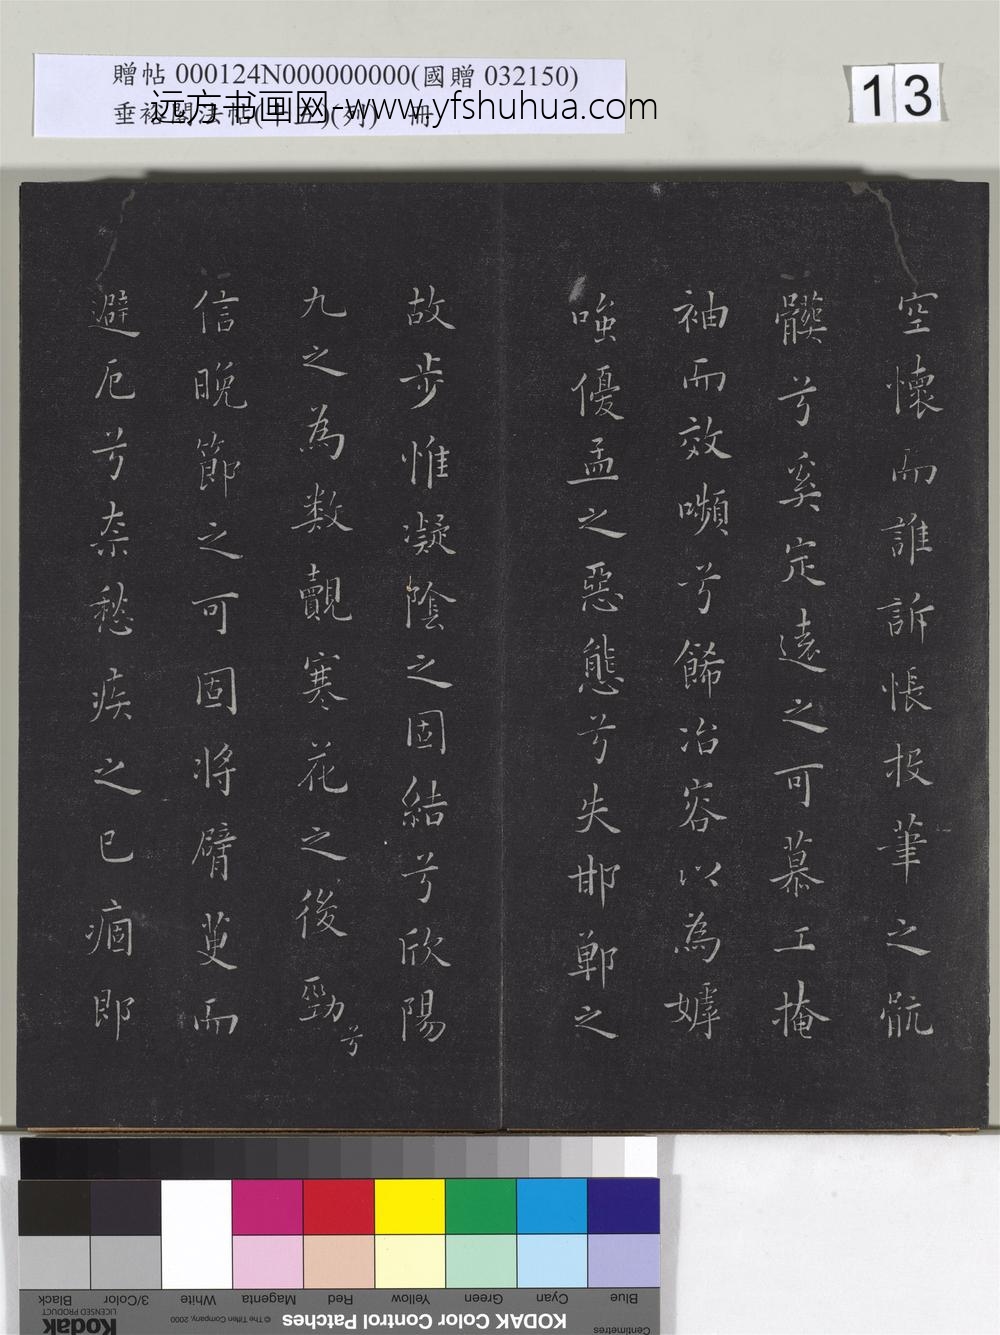 贈帖 000124N000000000(國贈 032150)
垂裕閣法帖(十五)(列) 冊
远方书画网-www.yfshuhua.com
13
空懷而誰訴悵投筆之骯
髒兮奚定遠之可慕工掩
袖而效嚬兮餙冶容以為嫭
嗤優孟之惡態兮失邯鄲之
故步惟凝陰之固結兮欣陽
九之為数覿寒花之後勁兮
信晩節之可固將臂茰而
避厄兮柰愁疾之已痼郎
Blue
Cyan
Green
Yellow
Red
Magenta
White
3/Color
Black
Centimetres
KODAK Color Control Patches
© The Tiffen Company, 2000
Kodak
LICENSED PRODUCT